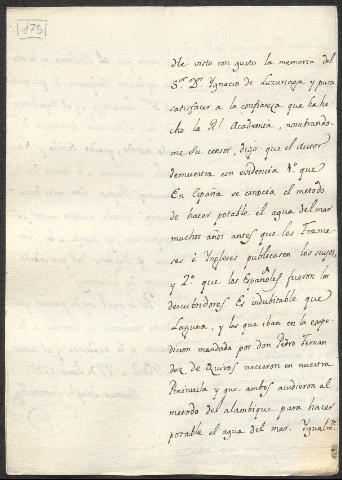 173
He visto con gusto la memoria del
S.or D.r Ygnacio de Luzuriaga y para
satisfacer a la confianza que ha he-
cho la R.l Academia, nombrando-
me su censor, digo que el Autor
demuestra con evidencia 1.o que
En España se conocia el metodo
de hacer potable el agua del mar
muchos años antes que los France-
ses è Yngleses publicasen los suyos,
y 2.o que los Españoles fueron los
descubridores Es indubitable que
Laguna, y los que iban en la expe-
dicion mandada por don Pedro Fernan
dez de Quiros nacieron en nuestra
Peninsula y que ambos acudieron al
metodo del alambique para hacer
potable el agua del mar. Ygualm.te